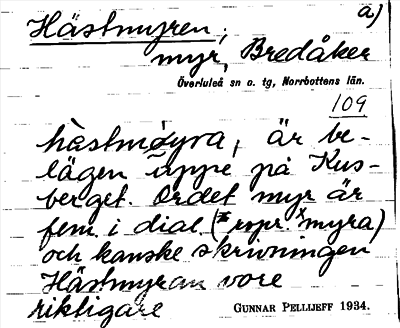 a)
Hästmyren,
myr, Bredåker
Överluleå sn o. tg, Norrbottens län.
109
hàstmøyra, är be-
lägen uppe på Kus-
berget. Ordet myr är
fem. i dial. (ropr. ˣmyra)
och kanske skrivningen
Hästmyran vore
riktigare
GUNNAR PELLIJEFF 1934.